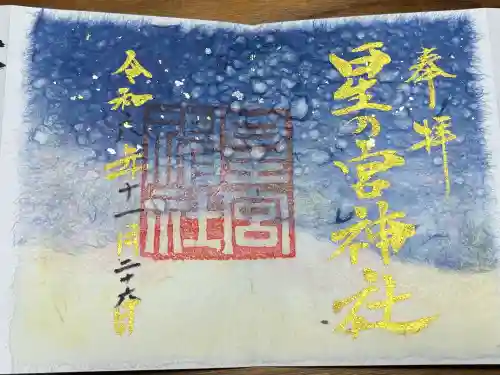 奉拝
星の宮神社
星宮
神社
令和六年十一月二十六日